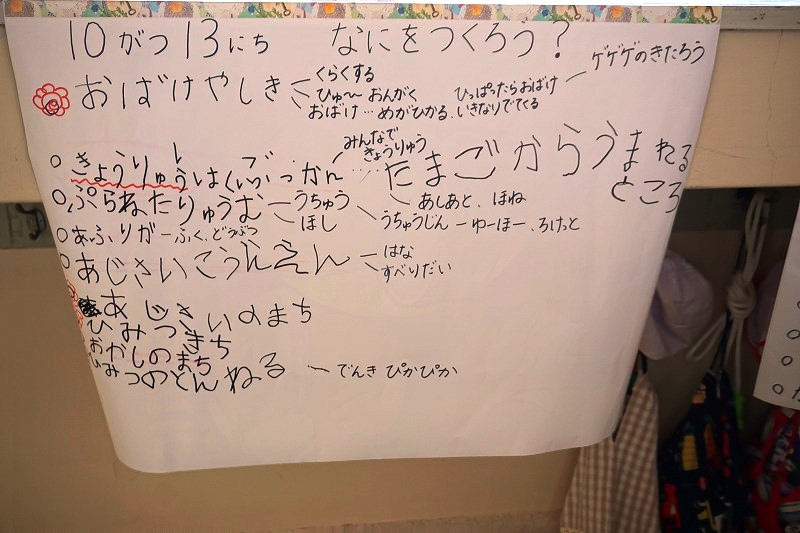 10がつ13にち　なにをつくろう？
おばけやしき
くらくする
ひゅ〜 おんがく
おばけ…めがひかる、いきなりでてくる
ひっぱったらおばけ
ゲゲゲのきたろう
きょうりゅうはくぶつかん
みんなで
きょうりゅう
…たまごからうまれる
ところ
あしあと、ほね
ぷらねたりゅうむ
うちゅう
ほし
うちゅうじん ー ゆーほー、ろけっと
あふりか ー ふく、どうぶつ
あじさいこうえん
はな
すべりだい
あじさいのまち
ひみつきち
おかしのまち
ひみつのとんねる
でんき ぴかぴか